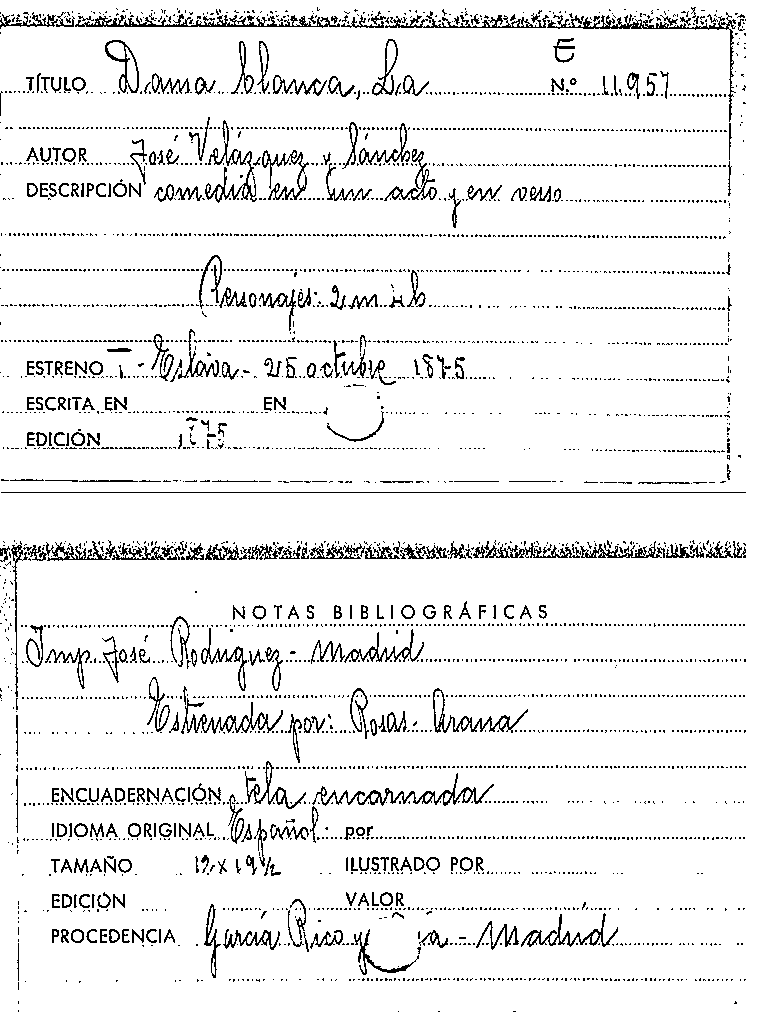 E
TÍTULO Dama blanca, La N.º 11.957
AUTOR José Velázquez y Sánchez
DESCRIPCIÓN comedia en un acto y en verso
Personajes: 2 m 4 h
ESTRENO T. - Eslava - 25 octubre 1875
ESCRITA EN EN
EDICIÓN 1875
NOTAS BIBLIOGRÁFICAS
Imp. José Rodríguez - Madrid
Estrenada por: Rosas - Arana
ENCUADERNACIÓN tela encarnada
IDIOMA ORIGINAL Español por
TAMAÑO 12 x 19 ½ ILUSTRADO POR
EDICIÓN VALOR
PROCEDENCIA García Rico y - Madrid